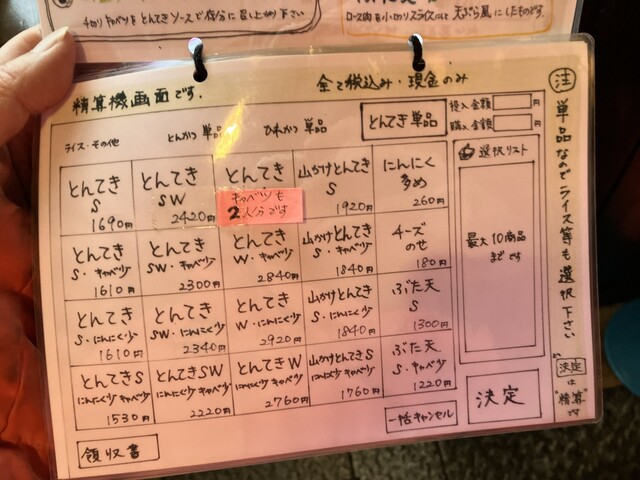 千切りキャベツをとんてきソースで存分に召し上がり下さい
ロース肉を小切りスライスして天ぷら風にしたものです。
精算機画面です。
全て税込み・現金のみ
ライス・その他
とんかつ 単品
ひれかつ 単品
とんてき単品
投入金額 円
購入金額 円
とんてき
S
1690円
とんてき
SW
2420円
とんてき
キャベツも
2人分です
山かけとんてき
S
1920円
にんにく
多め
260円
とんてき
S・キャベツ少
1610円
とんてき
SW・キャベツ少
2300円
とんてき
W・キャベツ少
2840円
山かけとんてき
S・キャベツ少
1840円
チーズ
のせ
180円
とんてき
S・にんにく少
1610円
とんてき
SW・にんにく少
2340円
とんてき
W・にんにく少
2920円
山かけとんてき
S・にんにく少
1840円
ぶた天
S
1300円
とんてきS
にんにく少 キャベツ少
1530円
とんてきSW
にんにく少 キャベツ少
2220円
とんてきW
にんにく少 キャベツ少
2760円
山かけとんてきS
にんにく少 キャベツ少
1760円
ぶた天
S・キャベツ少
1220円
選択リスト
最大10商品
までです
決定
一括キャンセル
領収書
注
単品なのでライス等も選択下さい
決定
は
"精算"
です